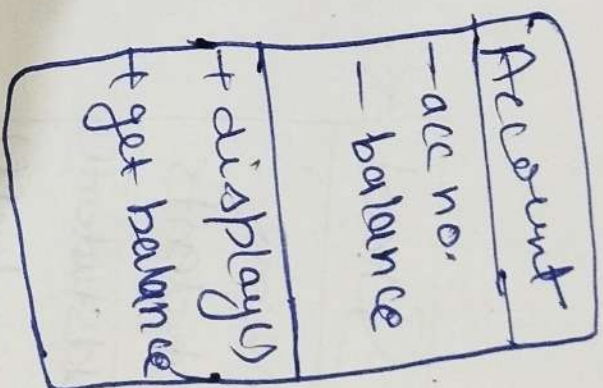 Account
- acc no.
- balance
+ display()
+ get balance